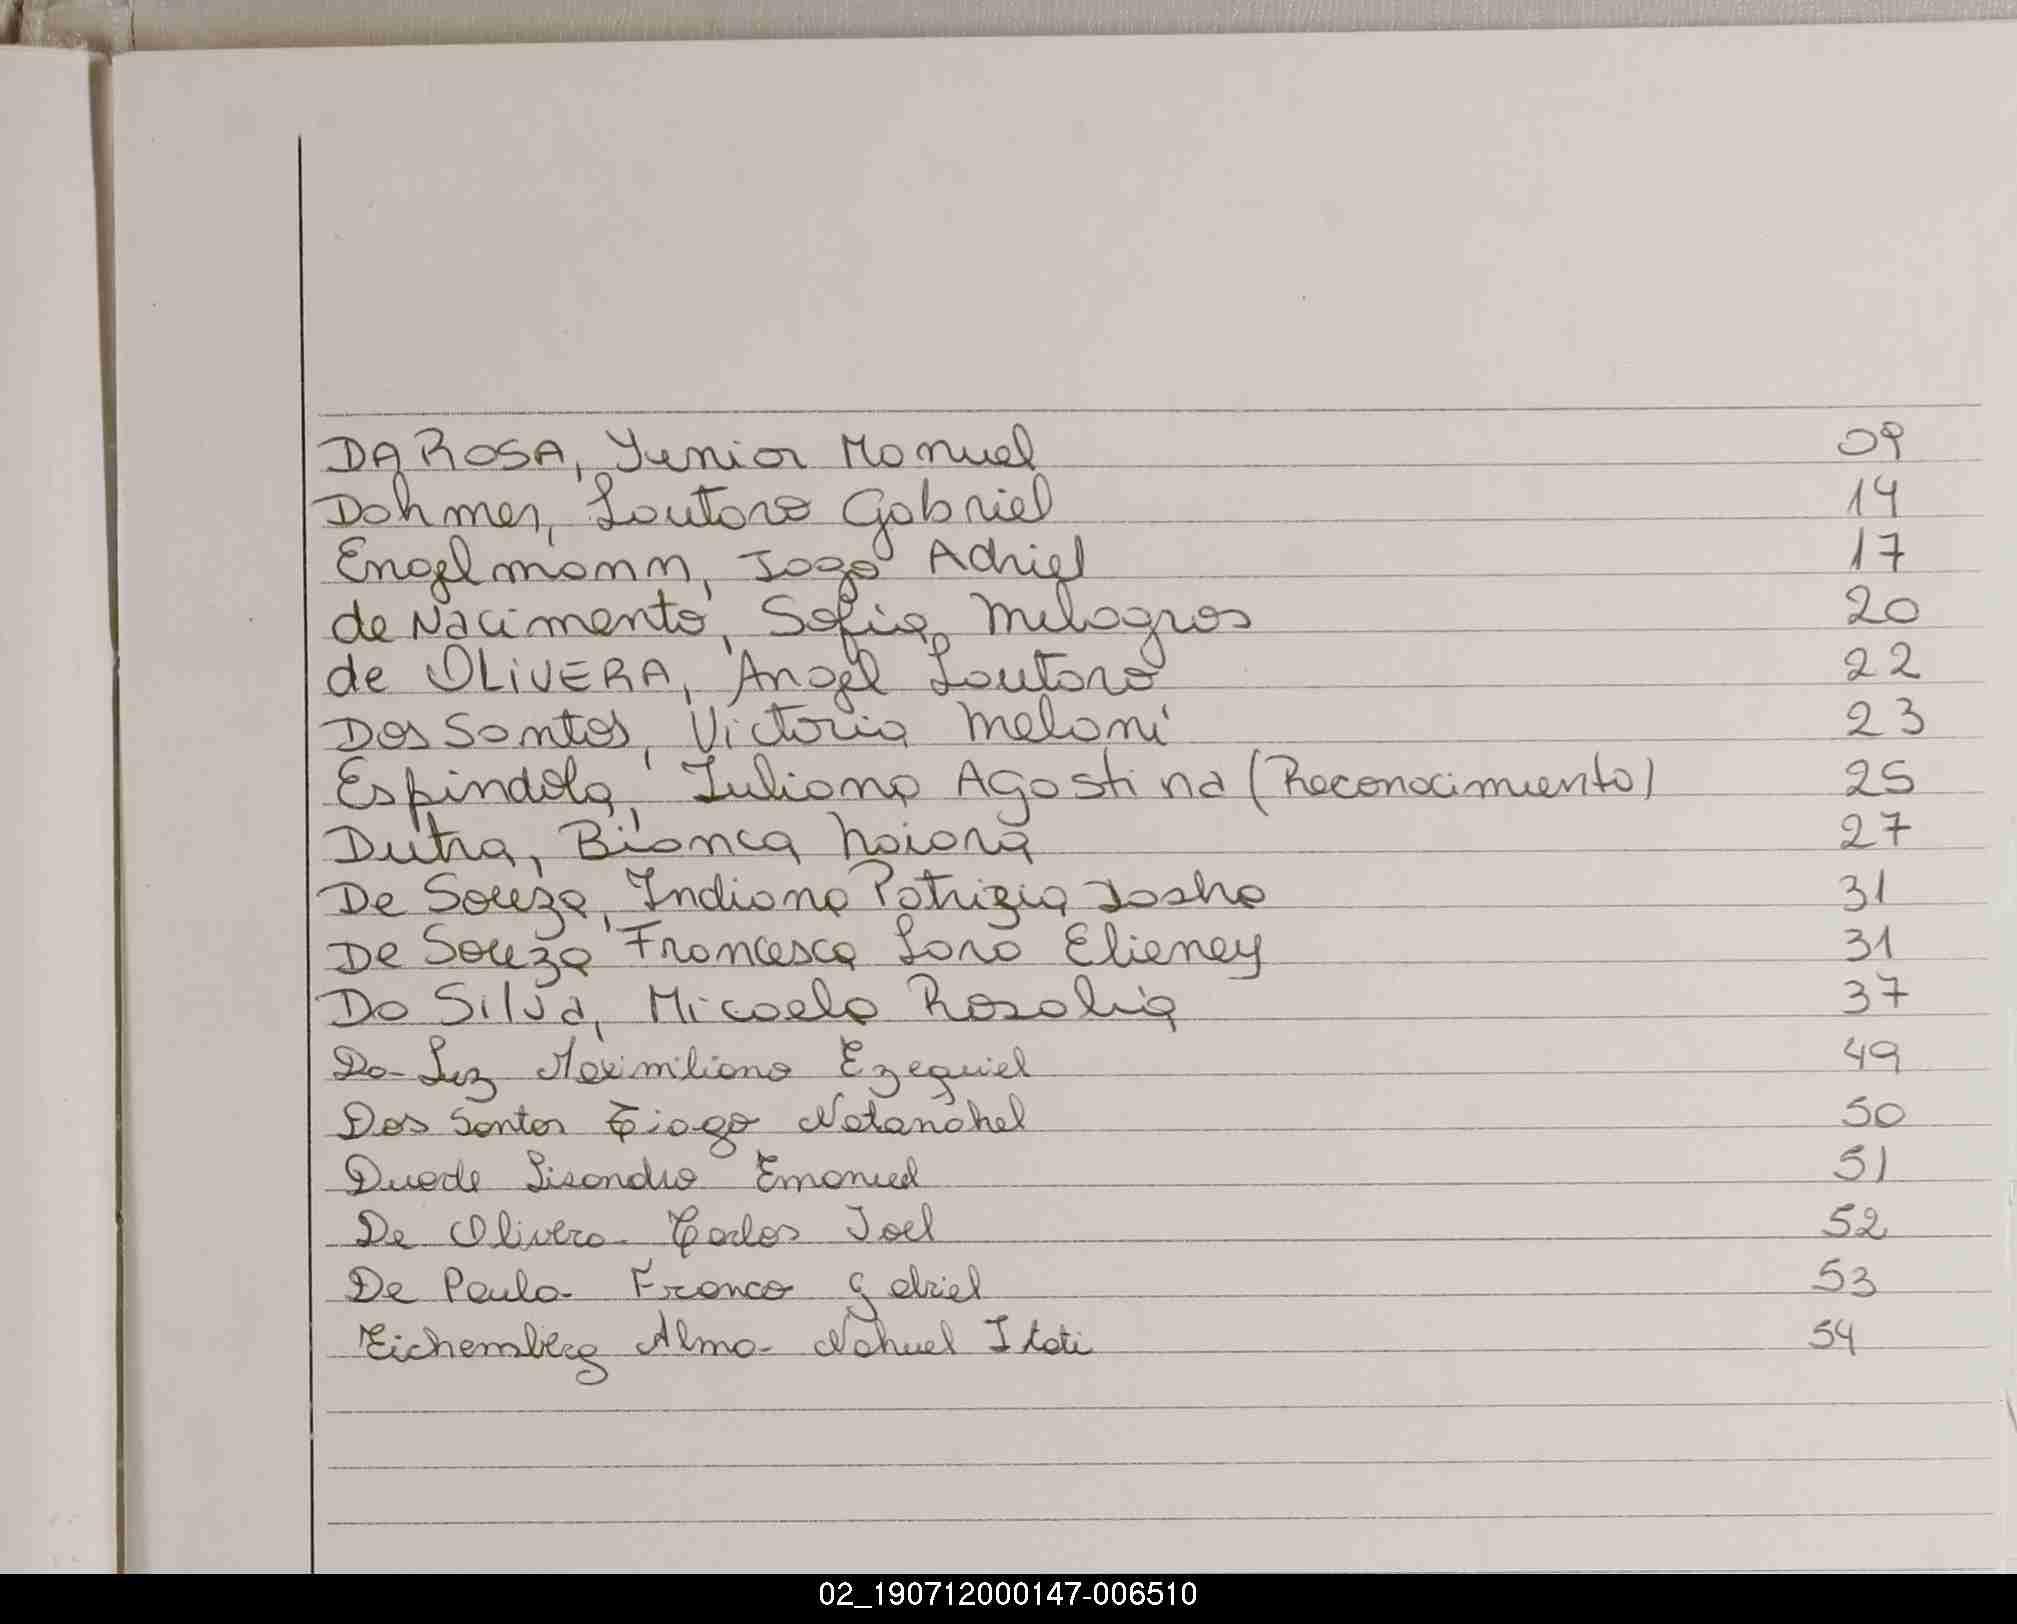 DA ROSA, Yunior Manuel 09
Dahmer, Lautaro Gabriel 14
Engelmann, Iago Adriel 17
de Nacimento, Sofia Milagros 20
de OLIVERA, Angel Lautaro 22
Dos Santos, Victoria Melani 23
Espindola, Iuliana Agostina (Reconocimiento) 25
Dutra, Bianca Naiara 27
De Souza, Indiana Patrizia 31
De Souza Francesca Lara Elieney 31
Da Silva, Micaela Rosalia 37
Da Luz Maximiliano Ezequiel 49
Dos Santos Tiago Natanahel 50
Duarte Lisandro Emanuel 51
De Olivera Carlos Joel 52
De Paula Franco Gabriel 53
Eichemberg Alma Nahuel Itati 54
02_190712000147-006510